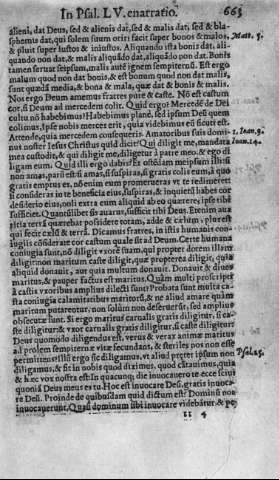 In Psal. LV. enarratio. 663
alieni, dat Deus, sed & alienis dat, sed & malis dat, sed & bla-
sphemis dat, qui solem suum oriri facit super bonos & malos, Matt. 5.
& pluit super iustos & iniustos. Aliquando ista bonis dat, ali-
quando non dat, & malis aliquando dat, aliquãdo non dat. Bonis
tamen seruat seipsum, malis autē ignem sempiternũ. Est ergo
malum quod non dat bonis, & est bonum quod non dat malis,
sunt quædã media, & bona & mala, quæ dat & bonis & malis.
Nos ergo Deum amemus fratres purè & castè. Nõ est castum
cor, si Deum ad mercedem colit. Quid ergo? Mercedē de Dei
cultu nõ habebimus? Habebimus planè, sed ipsum Deũ quem
colimus. Ipse nobis merces erit, quia videbimus eũ sicuti est.
Attende, quia mercedem consequeris. Amatoribus suis domi- 1. Ioan. 3.
nus noster Iesus Christus quid dicit? Qui diligit me, mandata Ioan. 14.
mea custodit, & qui diligit me, diligetur à patre meo, & ego di
ligam eum. Quid illi ergo dabis? Et ostẽdam meipsum illi. Si
non amas, parũ est: si amas, si suspiras, si gratis colis eum, à quo
gratis emptus es,
si consideras in te beneficia eius, suspiras, & inquietũ habes cor
desiderio eius, noli extra eum aliquid ab eo quærere, ipse tibi
sufficiet. Quantũlibet sis auarus, sufficit tibi Deus. Etenim aua
ritia terrã quærebat possidere totam, adde & cælum: plus est
qui fecit cælũ & terrã. Dicam⁹ fratres, in istis humanis con-
iugiis cõsiderate cor castum quale sit ad Deum. Certe humana
coniugia sunt, nõ diligit vxorē suam, qui propter dotem illam
diligit: non maritum castè diligit, quæ propterea diligit, quia
aliquid donauit, aut quia multum donauit. Donauit & diues
maritus, & pauper factus est maritus. Quàm multi proscripti
à castis vxoribus amplius dilecti sunt? Probata sunt multa ca
sta coniugia calamitatibus maritorũ, & ne aliud amare quàm
maritum putarentur, non solùm non deseruerũt, sed amplius
obsecutæ sunt. Si ergo maritus carnalis gratis diligitur, si ca-
stè diligitur: & vxor carnalis gratis diligitur, si castè diligitur:
Deus quomodo diligendus est, verus & verax animæ maritus
ad prolem sempiternæ vitæ fecundans, & steriles nos non esse
permittens? Sic ergo diligamus, vt aliud præter ipsum non
diligamus, & fit in nobis quod diximus, quod cãtauimus, quia
& hæc vox nostra est: In quacunq; die inuocauero te ecce sciui Psal. 55.
quoniã Deus meus es tu. Hoc est inuocare Deũ, gratis inuoca-
re Deũ. Proinde de quibusdam quid dictum est? Dominũ non
inuocauerunt. Quasi dominum sibi inuocare videbãtur, & pe
11 4